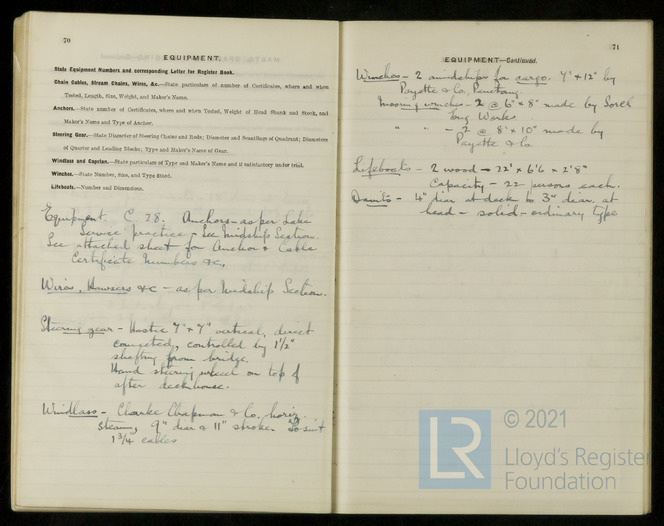 70
EQUIPMENT.
State Equipment Numbers and corresponding Letter for Register Book.
Chain Cables, Stream Chains, Wires, &c.—State particulars of number of Certificates, where and when
Tested, Length, Size, Weight, and Maker's Name.
Anchors.—State number of Certificates, where and when Tested, Weight of Head Shank and Stock, and
Maker's Name and Type of Anchor.
Steering Gear.—State Diameter of Steering Chains and Rods; Diameter and Scantlings of Quadrant; Diameters
of Quarter and Leading Blocks; Type and Maker's Name of Gear.
Windlass and Capstan.—State particulars of Type and Maker's Name and if satisfactory under trial.
Winches.—State Number, Size, and Type fitted.
Lifeboats.—Number and Dimensions.
Equipment C 28. Anchors – as per Lake
Service practice – See Midship Section.
See attached sheet for Anchor & Cable
Certificate Numbers &c.
Wires, Hawsers &c – as per Midship Section.
Steering gear – Hastie 7" x 7" vertical, direct
connected, controlled by 1½"
shafting from bridge.
Hand steering wheel on top of
after deckhouse.
Windlass – Clarke Chapman & Co. horiz.
steam, 9" diar & 11" stroke. To suit
1¾" cables
71
EQUIPMENT—Continued.
Winches – 2 amidships for cargo. 7" x 12" by
Payette & Co. Penetang.
Mooring winches – 2 @ 6" x 8" made by Sorel
Works
" " – 2 @ 8" x 10" made by
Payette & Co.
Lifeboats – 2 wood – 22' x 6'6 x 2'8"
Capacity – 22 persons each.
Davits – 4" diar at deck to 3" diar. at
head – solid – ordinary type
LR
© 2021
Lloyd's Register
Foundation